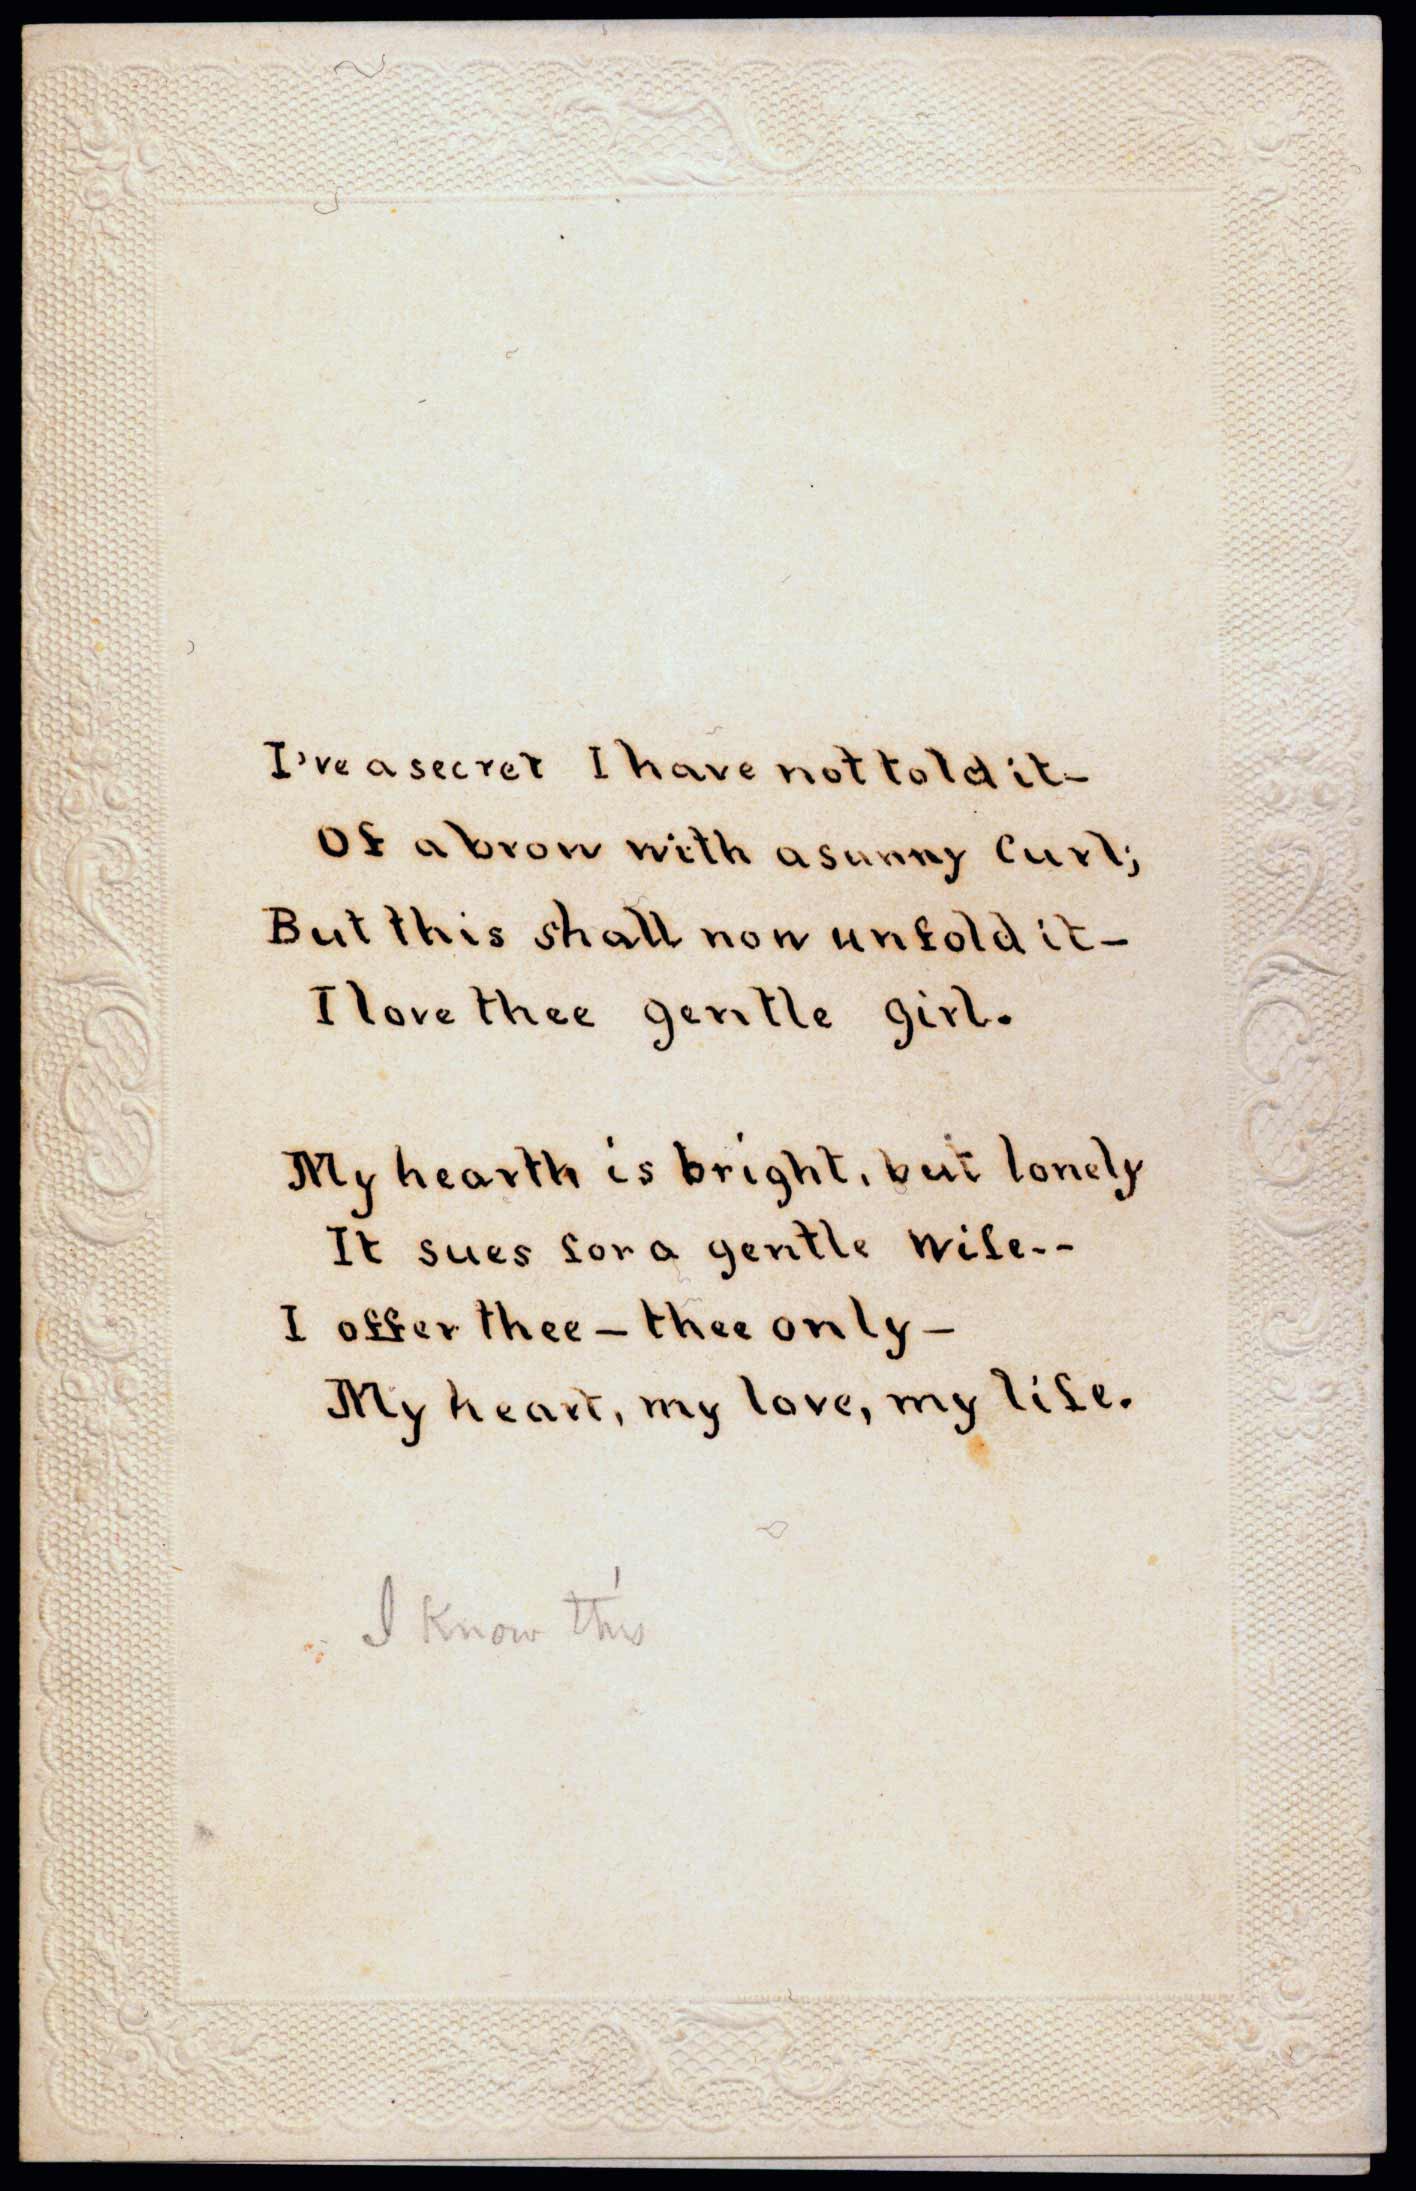 I've a secret I have not told it-
Of a brow with a sunny Curl;
But this shall now unfold it-
I love thee gentle girl.
My hearth is bright, but lonely
It sues for a gentle wife--
I offer thee - thee only -
My heart, my love, my life.
I know this